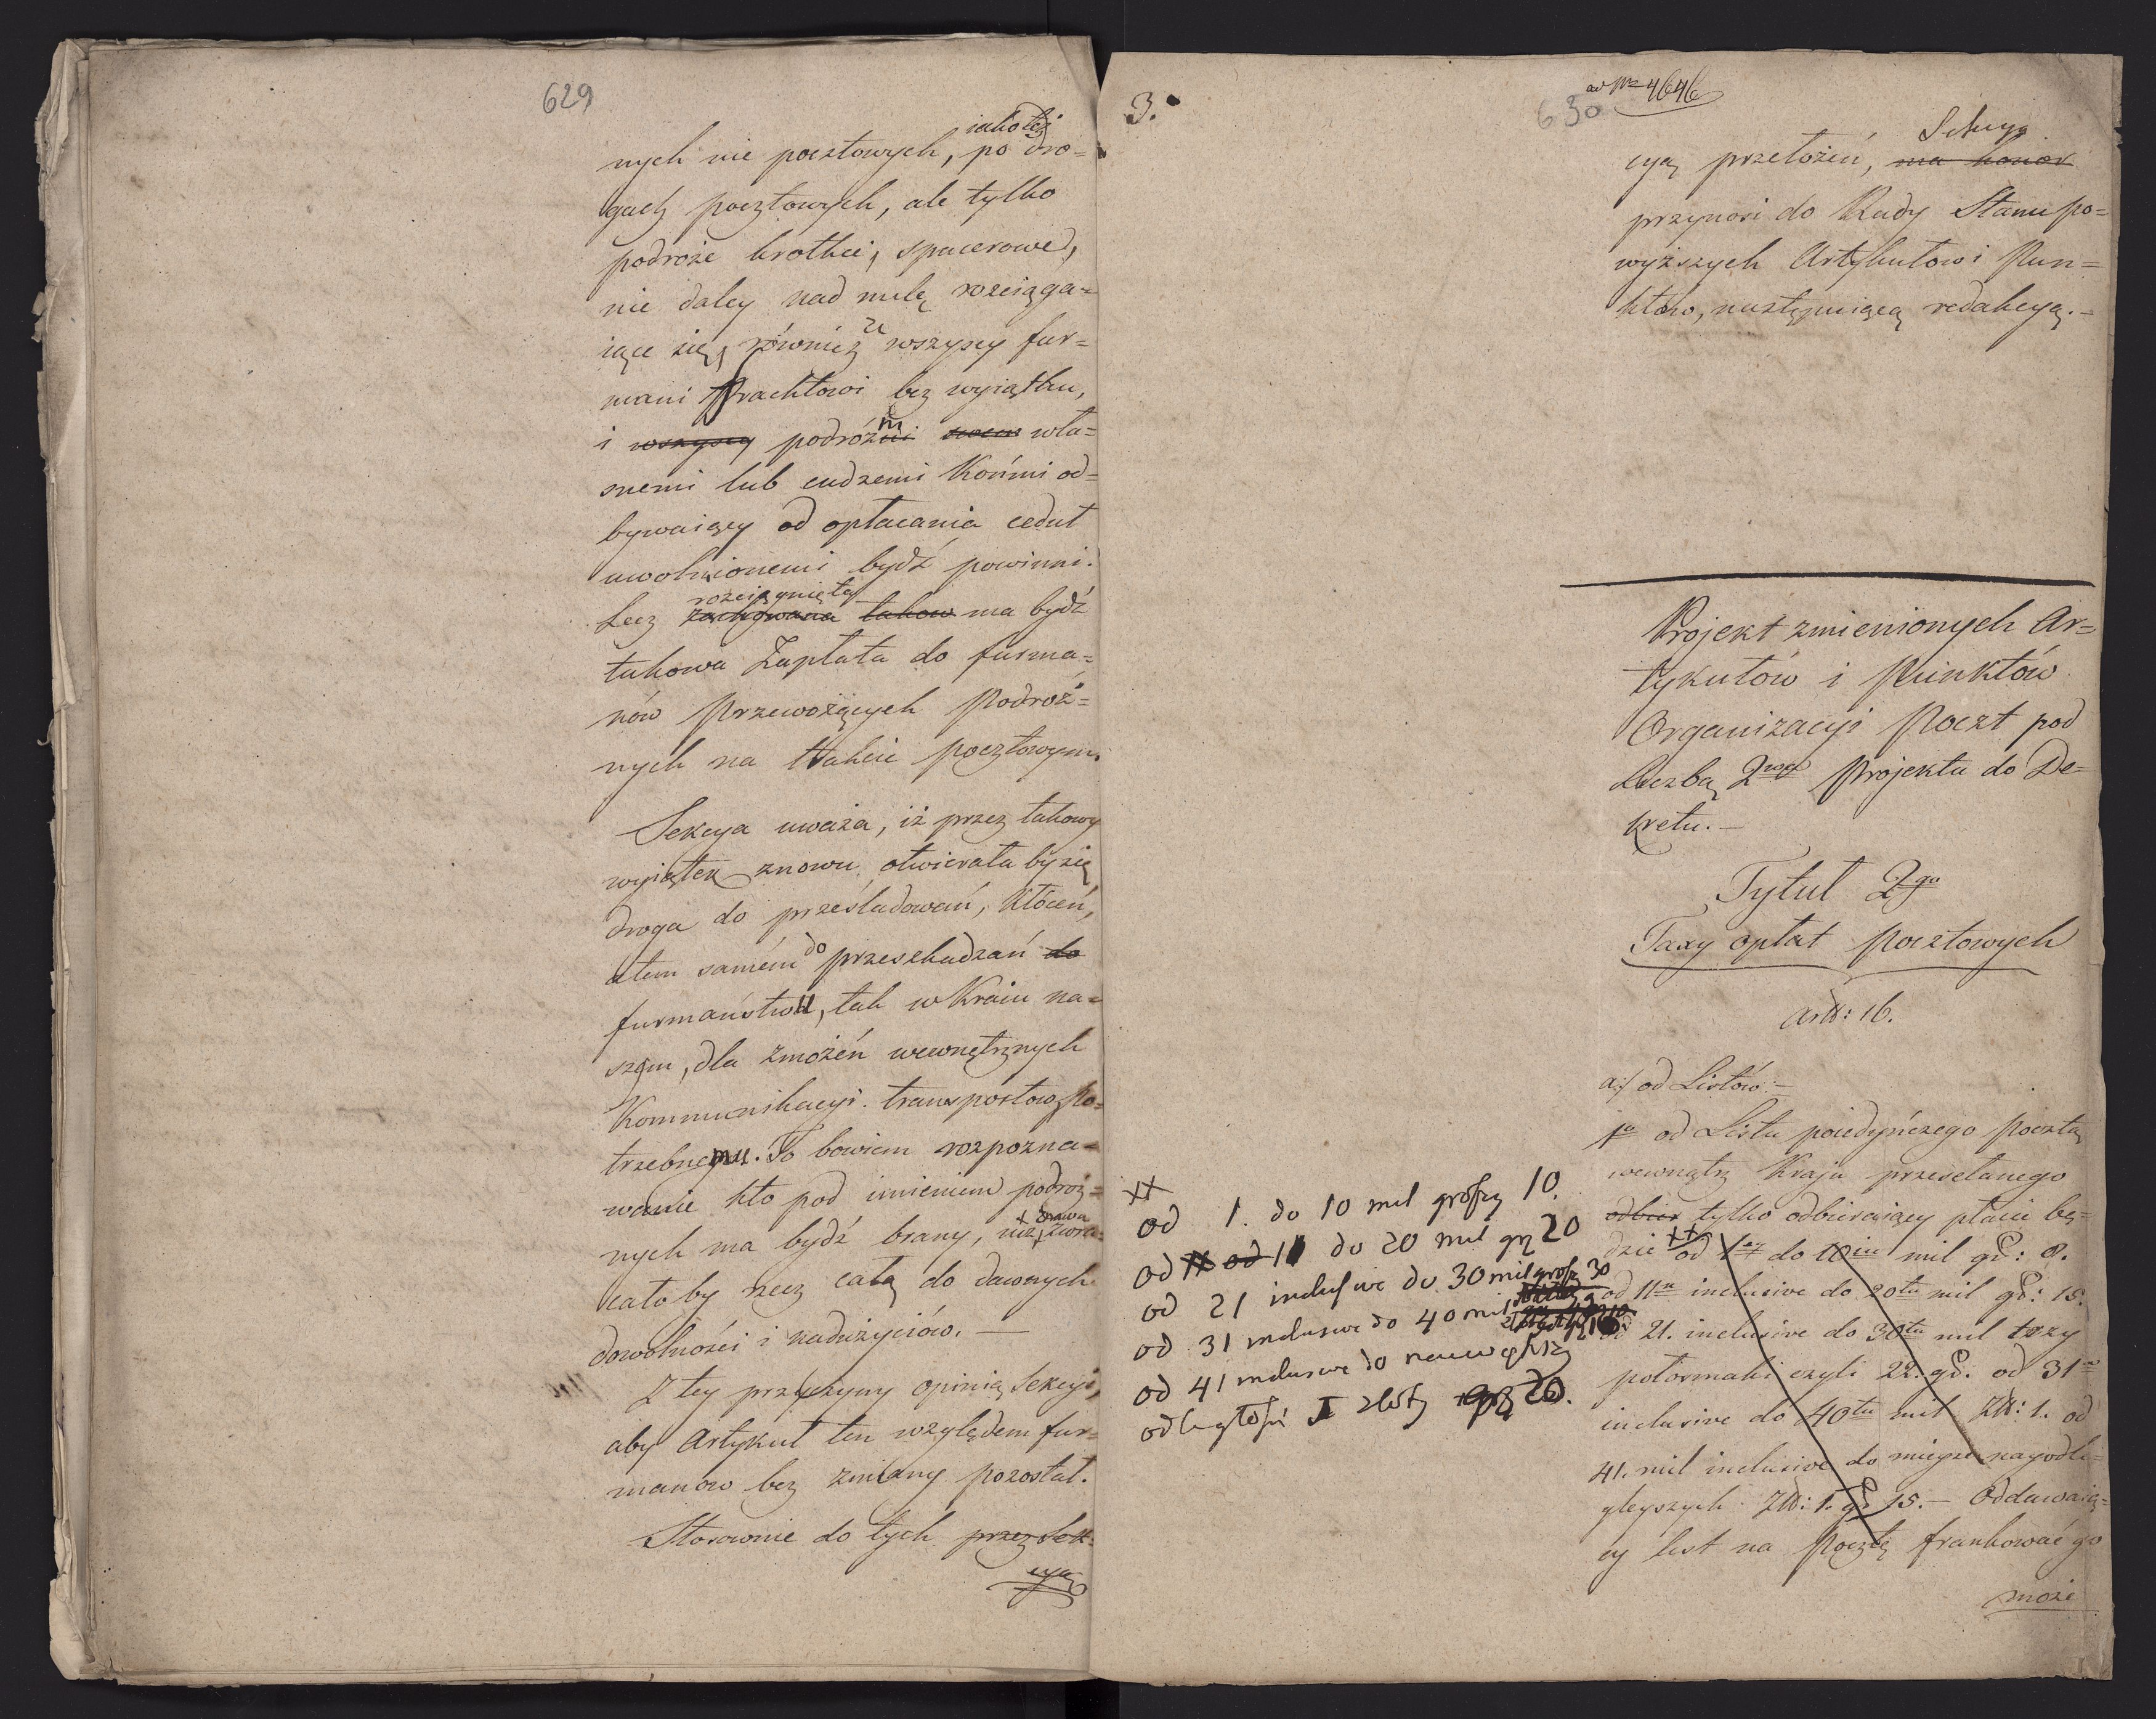 629
iako też
nych nie pocztowych, po dro=
gach pocztowych, ale tylko
podróże krotkie, spacerowe,
nie daley nad milę rozciąga=
iące się, również że wszyscy fur=
mani frachtowi bez wyiątku,
i wszyscy podróżni swem wła=
snemi lub cudzemi Końmi od=
bywaiący od opłacania ceduł
uwolnionemi bydź powinni.
rozciągnięta
Lecz zachowana takow ma bydź
takowa Zapłata do furma=
nów Przewożących Podróż=
nych na trakcie pocztowym.
Sekcya uważa, iż przez takowy
wyiątek znowu otwierała by się
droga do prześladowań, Kłóceń,
a tem samém do przeszkadzań do
furmaństwu, tak w Kraiu na=
szym, dla zmożeń wewnętrznych
Kommunikacyi transportów po=
trzebnemu. To bowiem rozpozna=
wanie kto pod imieniem podroż=
nych ma bydź brany,
cało by rzecz całą do dawnych
dowolności i nadużyciów. —
Z tey przyczyny opinią Sekcyi,
aby Artykuł ten względem fur=
manow bez zmiany pozostał.
Stosownie do tych przez Sek=
cyą
3.
ad Nr 4646
630
Sekcya
cyą przełożeń, ma honor
przynosi do Rady Stanu po=
wyższych Artykułow i Pun=
któw, następuiącą redakcyą. —
Projekt zmienionych Ar=
tykułów i Punktów
Organizacyi Poczt pod
Liczbą 2gą Projektu do De=
kretu. —
Tytuł 2go
Taxy opłat Pocztowych
Artł: 16.
a:/ od Listów: —
1o od Listu poiedyńczego Pocztą
wewnątrz Kraju przesełanego
odbier tylko odbieraiący płacić bę=
dzie ++ od 1ey do 10iu mil gr: 8.
od 11u inclusive do 20tu mil gr: 15.
od 21. inclusive do 30tu mil trzy
potormaki czyli 22. gr. od 31u
inclusive do 40tu mil Złł: 1. od
41. mil inclusive do mieysc nayodle=
gleyszych Złł: 1. gr 15. — Oddawaią=
cy list na Pocztę frankować go
może
++
od 1. do 10 mil groszy 10.
od 11 od 11 do 20 mil gr 20
od 21 inclusive do 30 mil grosz 30
od 31 inclusive do 40 mil
od 41 inclusive do naywiększy
odległości I złoty gr 20.